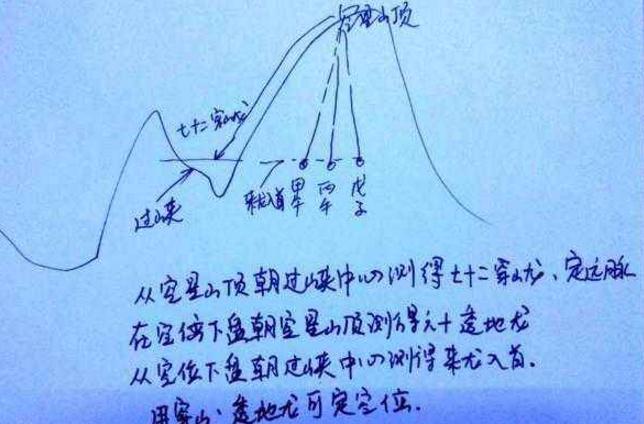 穴星山顶
七十二穿山龙
过峡
来龙入首
丙午
戊子
从穴星山顶朝过峡中心测得七十二穿山龙、定远脉
在穴位下盘朝穴星山顶测得六十透地龙
从穴位下盘朝过峡中心测得来龙入首.
用穿山、透地龙可定穴位.